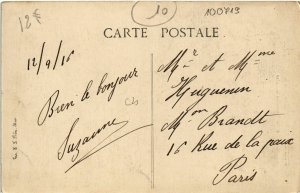 12F
10
100713
CARTE POSTALE
12/9/16
Bien le bonjour
Suzanne
Mr et Mme
Huguenin
Mon Brandt
16 Rue de la paix
Paris